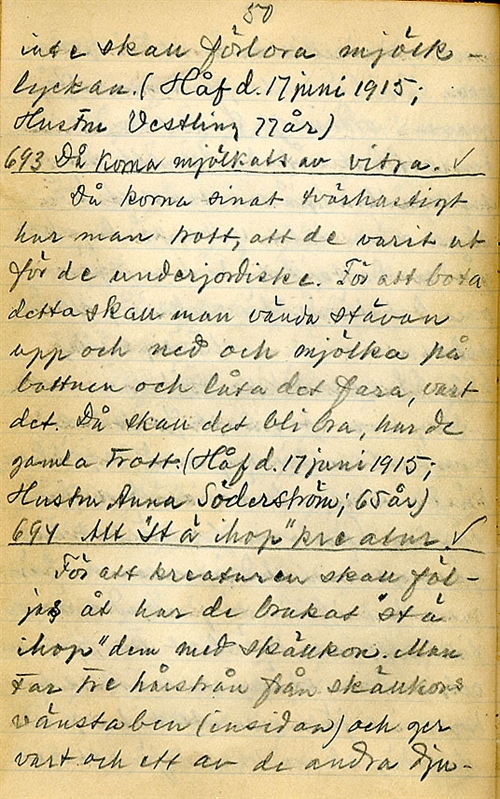 50
inte skall förlora mjölk-
lyckan. (Håf d. 17 juni 1915;
Hustru Vestling 77 år)
693 Då korna mjölkats av vitra. ✓
Då korna sinat tvärhastigt
har man trott, att de varit ut
för de underjordiske. För att bota
detta skall man vända stävan
upp och ned och mjölka på
bottnen och låta det fara, vart
det. Då skall det bli bra, har de
gamla trott. (Håf d. 17 juni 1915;
Hustru Anna Söderström; 65 år)
694 Att "stå ihop" kreatur. ✓
För att kreaturen skall föl-
jas åt har de brukat "stå
ihop" dem med skällkon. Man
tar tre hårstrån från skällkons
vänstra ben (insidan) och ger
vart och ett av de andra dju-